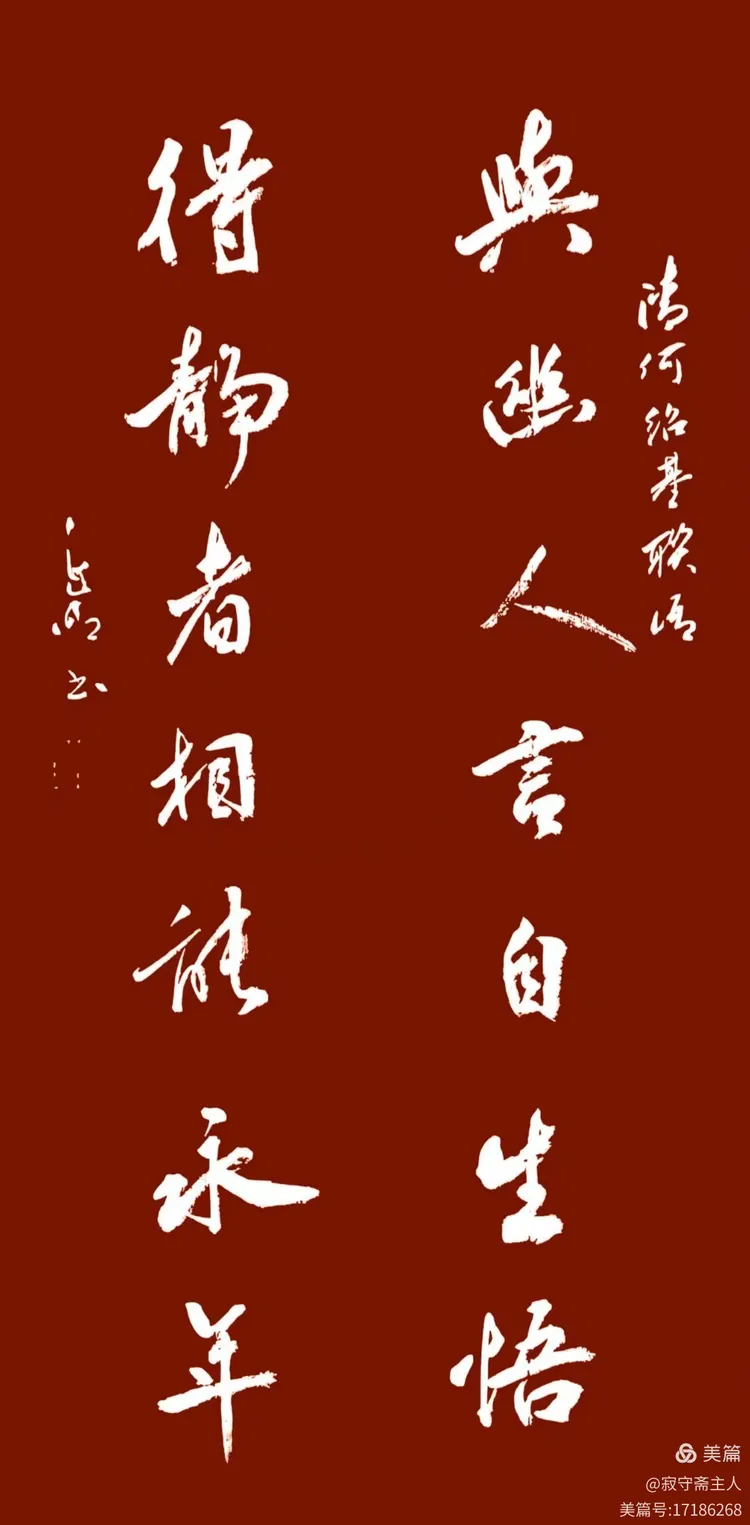 清何绍基联语
與幽人言自生悟
得静者相能永年
书
美篇
@寂守斋主人
美篇号:17186268